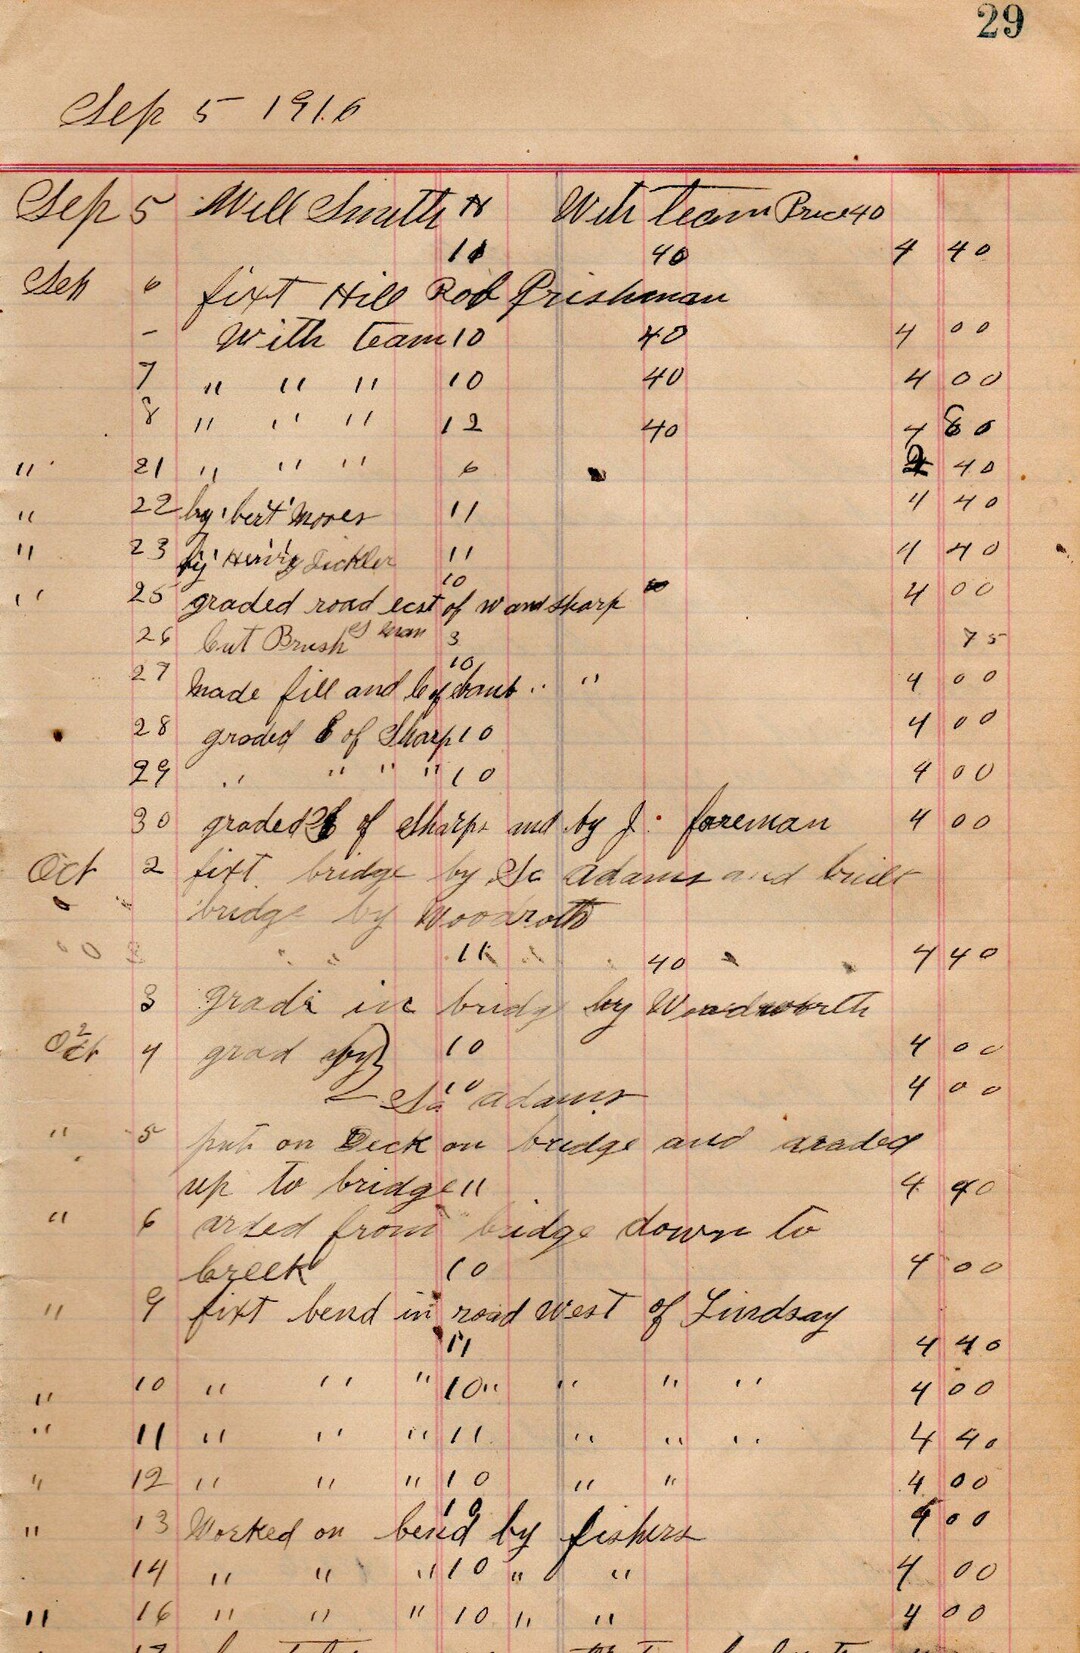 29
Sep 5 1916
Sep 5 Will Smith H With team Price 40
11 40 4 40
Sep 6 fixt Hill Rob Prishman
- With team 10 40 4 00
7 " " " 10 40 4 00
8 " " " 12 40 4 80
" 21 " " " 6 2 40
" 22 by bert Moses 11 4 40
" 23 by Henry Tickler 11 4 40
" 25 graded road east of W and Sharp 10 4 00
26 Cut Brush man 3 75
27 Made fill and by " " 10 4 00
28 graded E of Sharp 10 4 00
29 " " " " 10 4 00
30 graded of Sharps and by J. foreman 4 00
Oct 2 fixt bridge by Adams and built
bridge by Woodroth
" " 11 40 4 40
3 grade in bridg by Woodworth
Oct 4 grad by 10 4 00
adams 10 4 00
" 5 put on Deck on bridge and araded
up to bridge 11 4 40
" 6 arded from bridge down to
Creek 10 4 00
" 9 fixt bend in road West of Lindsay
11 4 40
" 10 " " " 10 " " " " 4 00
" 11 " " " 11 " " " 4 40
" 12 " " " 10 " " 4 00
" 13 Worked on bend by fishers 10 4 00
14 " " " 10 " " 4 00
" 16 " " " 10 " " 4 00
17